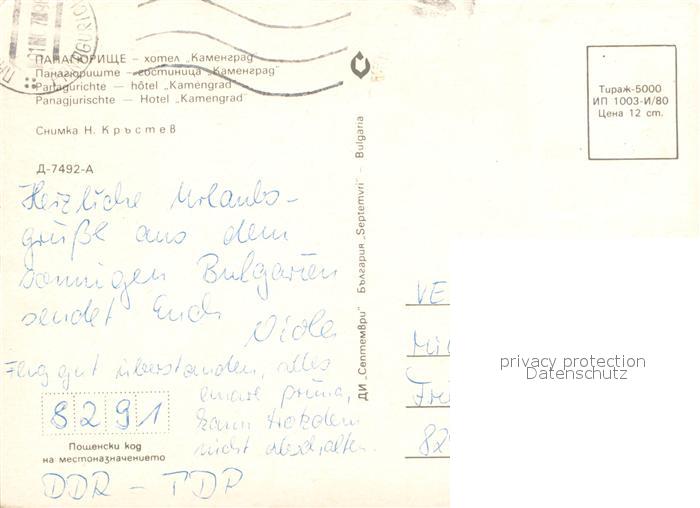 ПАНАГЮРИЩЕ – хотел „Каменград“
Панагюриште – гостиница „Каменград“
Panagurichte – hôtel „Kamengrad“
Panagjurischte – Hotel „Kamengrad“
Снимка Н. Кръстев
Д-7492-А
Herzliche Urlaubs-
grüße aus dem
sonnigen Bulgarien
sendet Euch
Viola
Flug gut überstanden, alles
prima,
kann trotzdem
nicht abschalten.
8291
Пощенски код
на местоназначението
DDR – ГДР
ДИ „Септември“ България „Septemvri“ – Bulgaria
Тираж-5000
ИП 1003-И/80
Цена 12 ст.
VE
Fri
82
privacy protection
Datenschutz